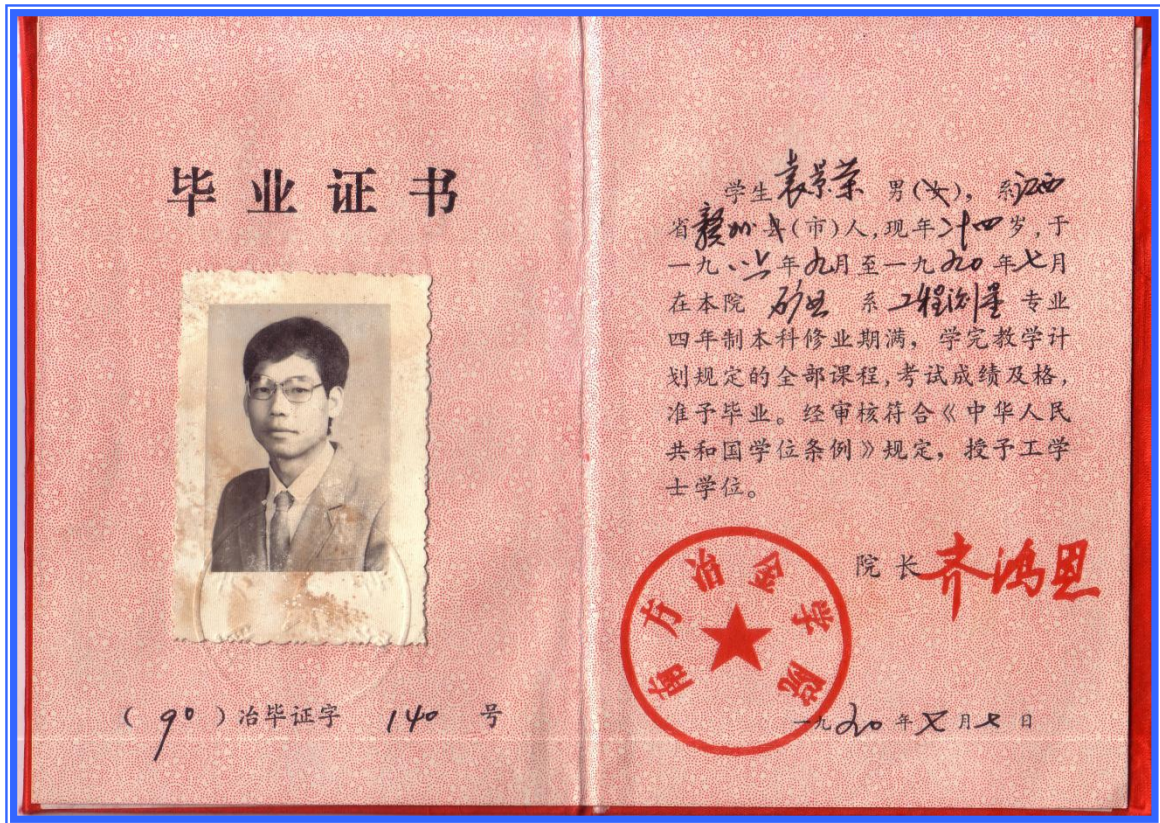 毕业证书
（90）冶毕证字 140 号
学生袁景荣 男(女)，系江西
省赣州县(市)人,现年二十四岁,于
一九八六年九月至一九九〇年七月
在本院 矿山 系 工程测量 专业
四年制本科修业期满，学完教学计
划规定的全部课程,考试成绩及格,
准予毕业。经审核符合《中华人民
共和国学位条例》规定，授予工学
士学位。
院长 齐鸿恩
南方冶金学院
一九九〇年七月七日